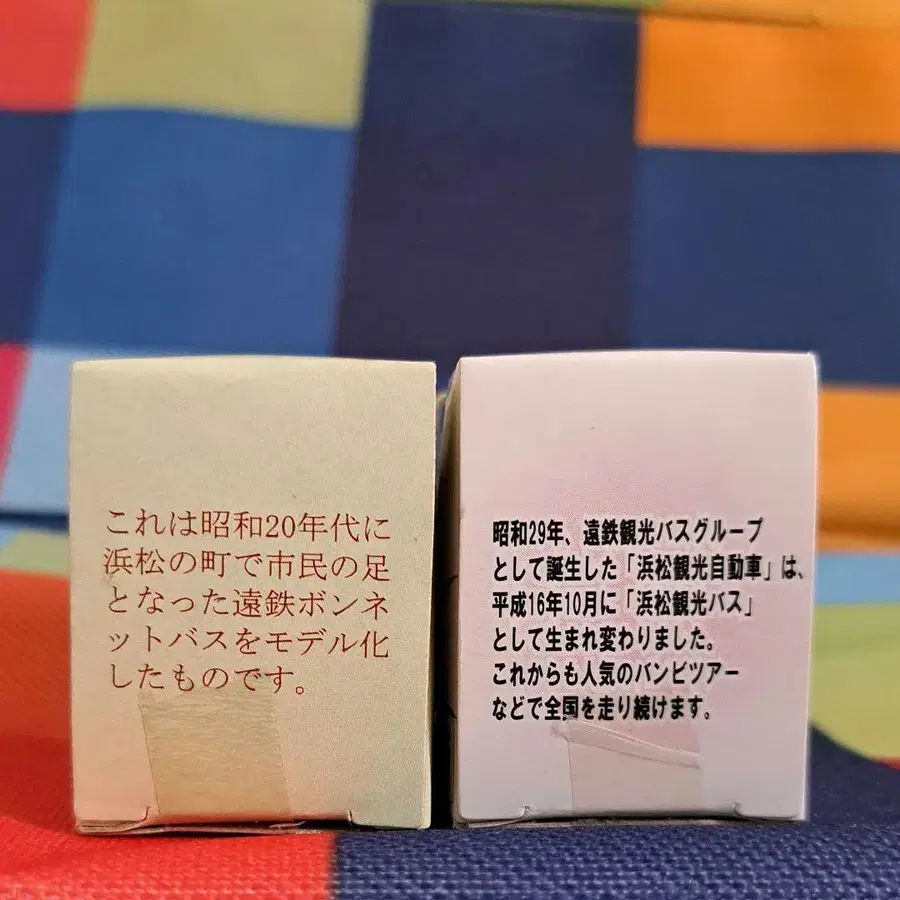 これは昭和20年代に
浜松の町で市民の足
となった遠鉄ボンネ
ットバスをモデル化
したものです。
昭和29年、遠鉄観光バスグループ
として誕生した「浜松観光自動車」は、
平成16年10月に「浜松観光バス」
として生まれ変わりました。
これからも人気のバンビツアー
などで全国を走り続けます。